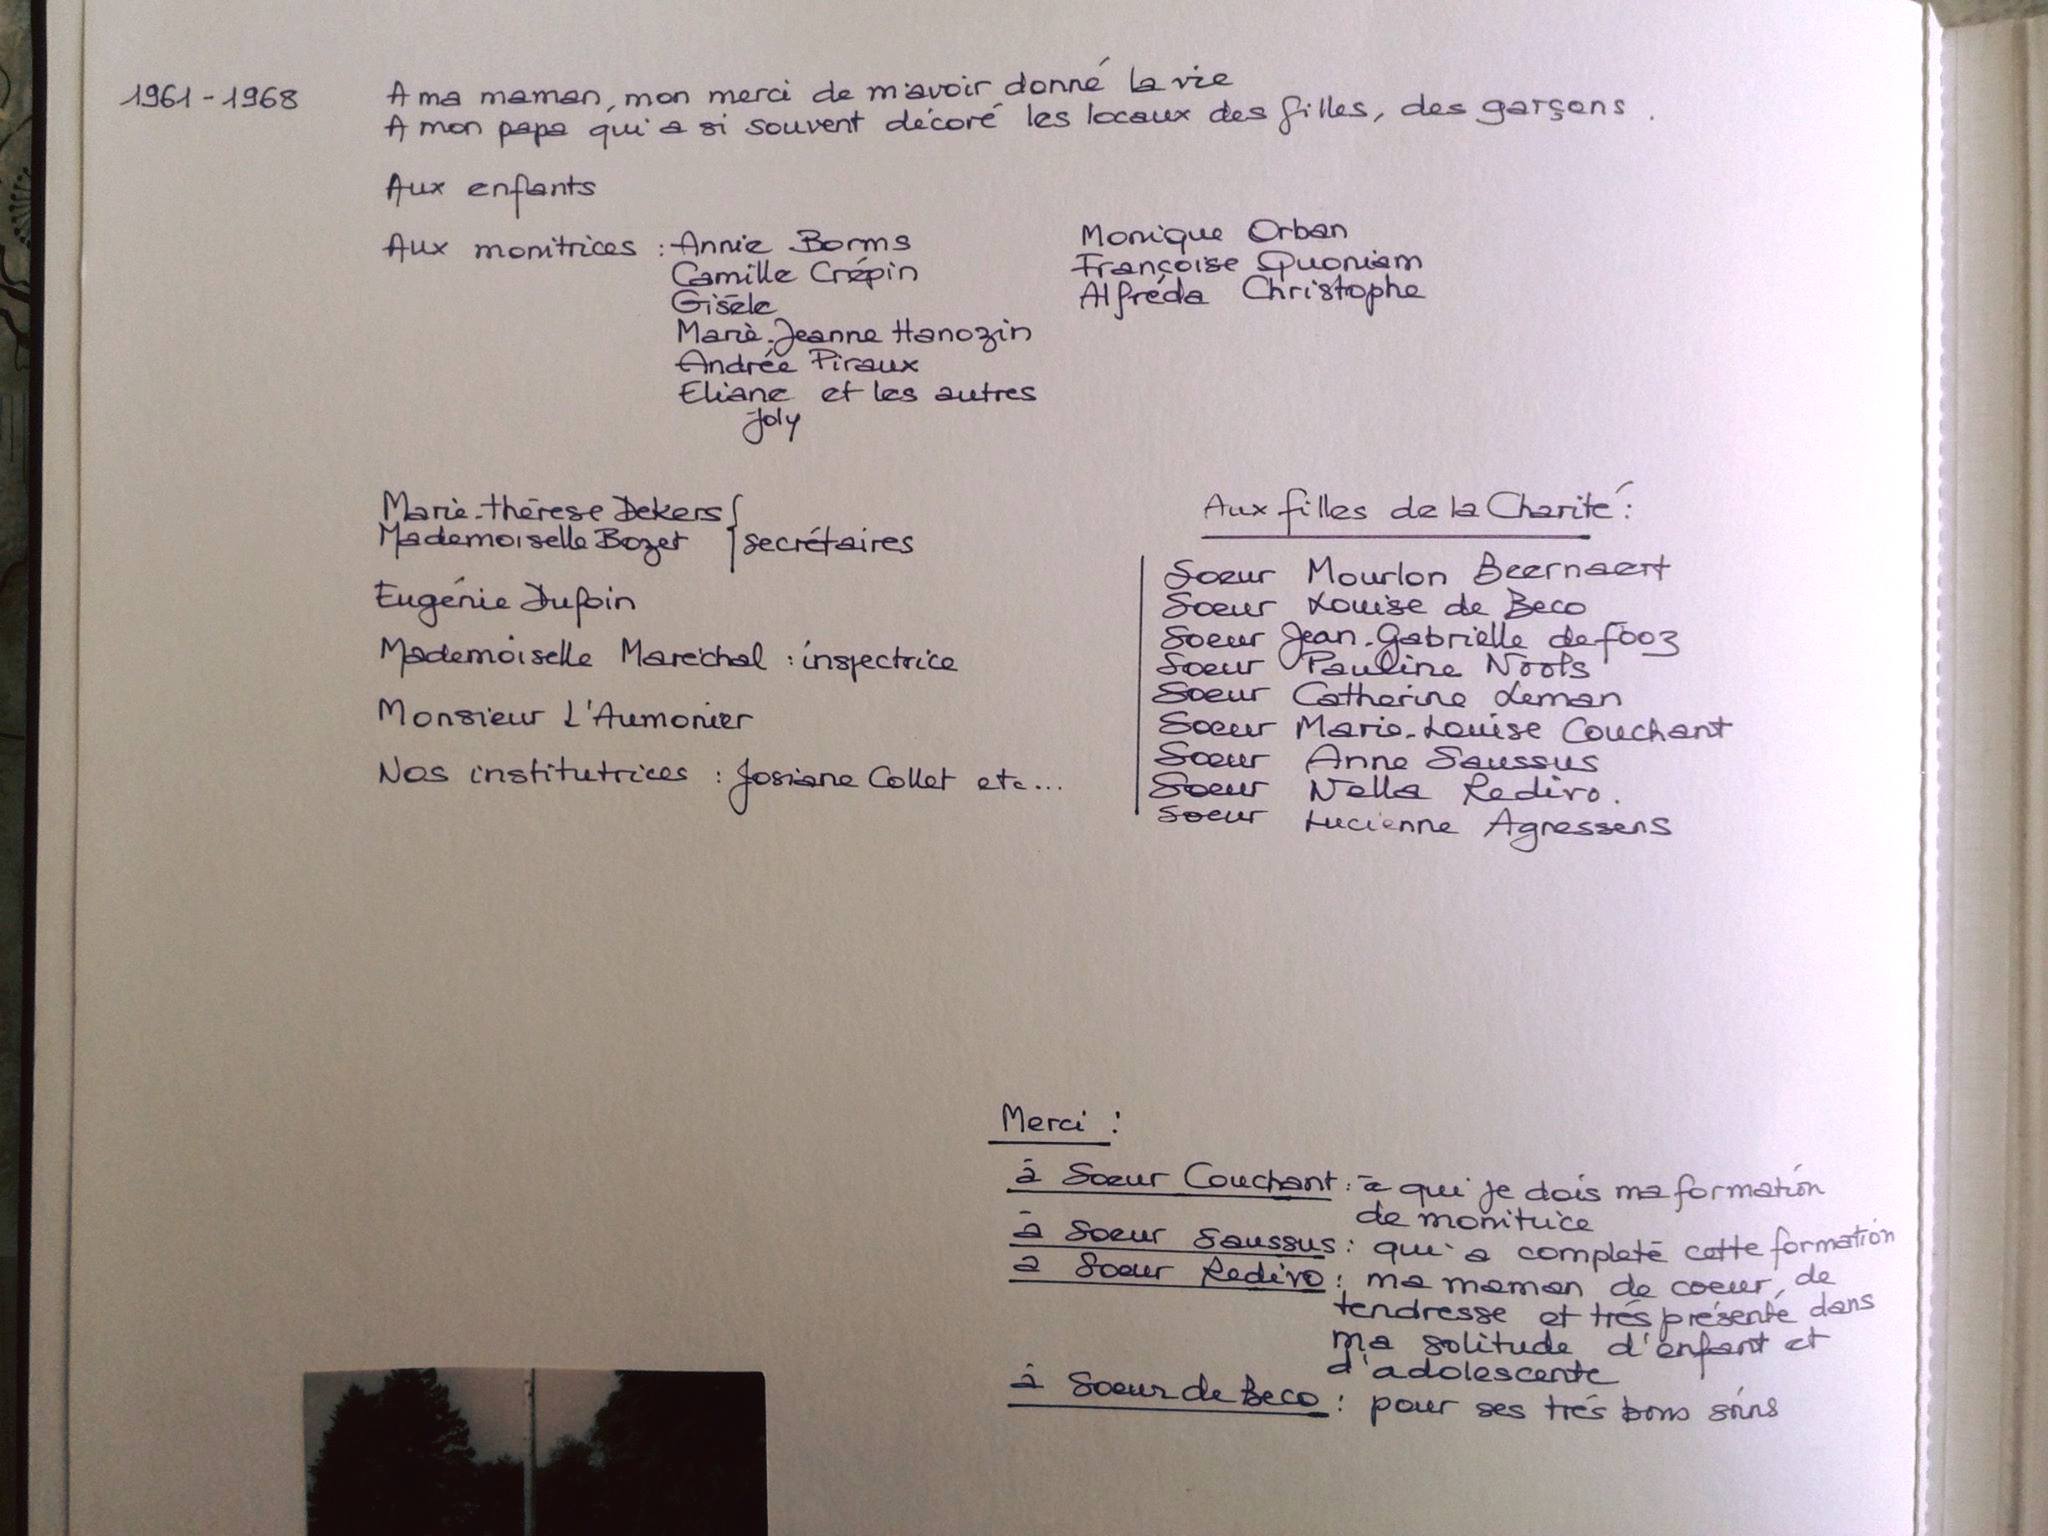 1961-1968
A ma maman, mon merci de m'avoir donné la vie
A mon papa qui a si souvent décoré les locaux des filles, des garçons.
Aux enfants
Aux monitrices : Annie Borms
Camille Crépin
Gisèle
Marie-Jeanne Hanozin
Andrée Piraux
Eliane et les autres
Joly
Monique Orban
Françoise Quoniam
Alfréda Christophe
Marie-thérèse Dekers
Mademoiselle Bozet
secrétaires
Eugénie Dufoin
Mademoiselle Maréchal : inspectrice
Monsieur L'Aumonier
Nos institutrices : Josiane Collet etc...
Aux filles de la Charité :
Soeur Mourlon Beernaert
Soeur Louise de Beco
Soeur Jean-Gabrielle de fooz
Soeur Pauline Noots
Soeur Catherine Leman
Soeur Marie-Louise Couchant
Soeur Anne Saussus
Soeur Nella Redivo.
Soeur Lucienne Agnessens
Merci :
à Soeur Couchant : à qui je dois ma formation
de monitrice
à Soeur Saussus : qui a complété cette formation
à Soeur Redivo : ma maman de coeur, de
tendresse et très présente dans
ma solitude d'enfant et
d'adolescente
à Soeur de Beco : pour ses très bons soins